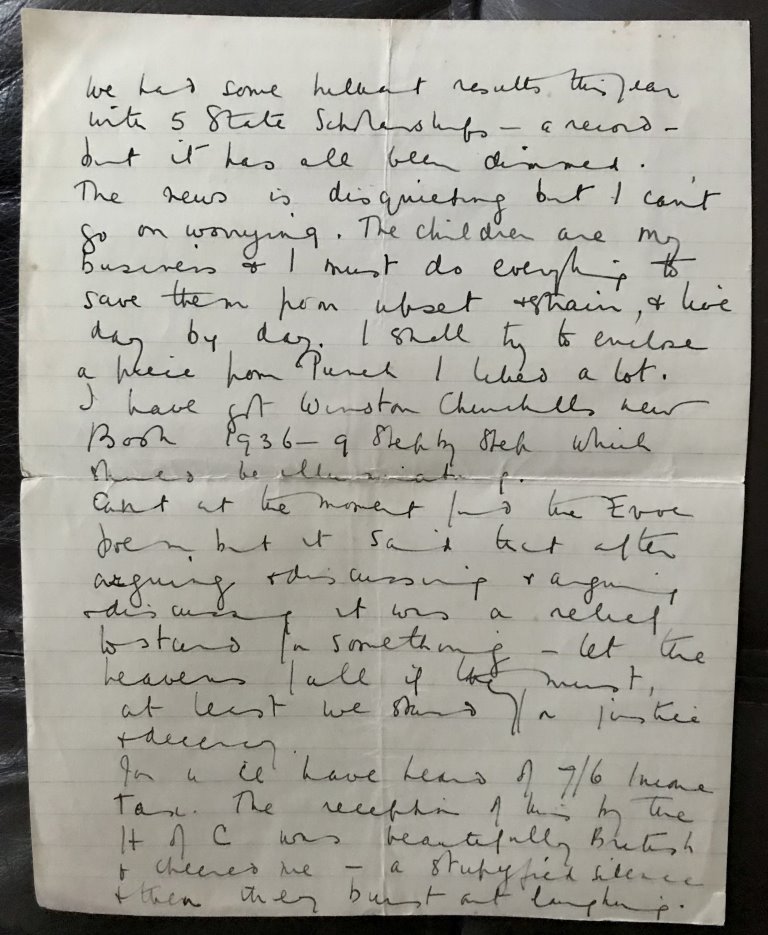 We had some brilliant results this year
with 5 State Scholarships – a record –
but it has all been dimmed.
The news is disquieting but I can't
go on worrying. The children are my
business & I must do everything to
save them from upset & strain, & live
day by day. I shall try to enclose
a piece from Punch I liked a lot.
I have got Winston Churchills new
Book 1936–9 Step by Step which
should be illuminating.
Can't at the moment find the Evoe
poem but it said that after
arguing & discussing & arguing
& discussing it was a relief
to stand for something – let the
heavens fall if they must,
at least we stand for justice
& decency.
You will have heard of 7/6 Income
Tax. The reception of this by the
H of C was beautifully British
& cheered me – a stupyfied silence
& then they burst out laughing.